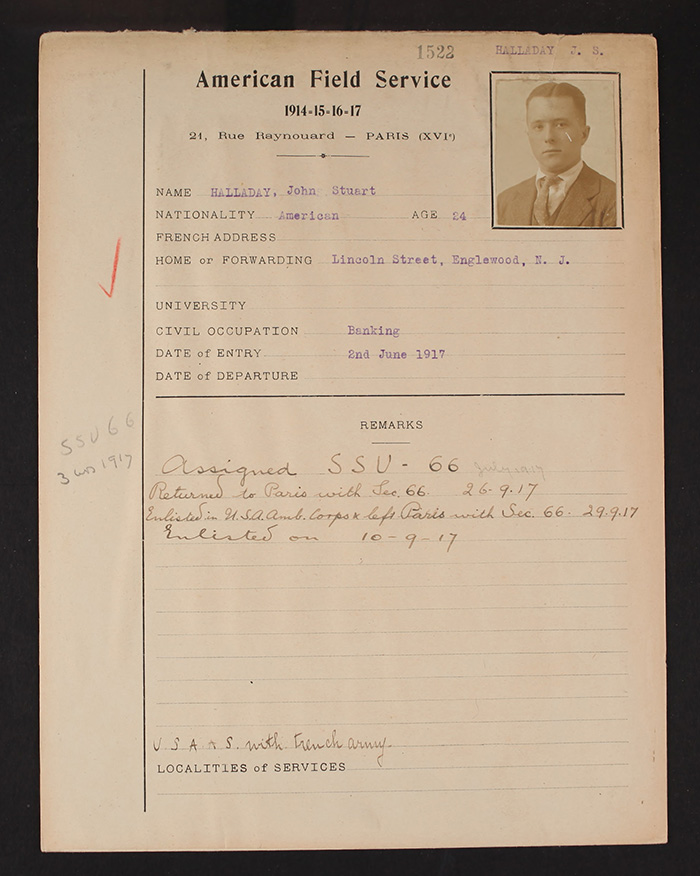 1522 HALLADAY J. S.
American Field Service
1914-15-16-17
21, Rue Raynouard — PARIS (XVIe)
NAME HALLADAY, John Stuart
NATIONALITY American AGE 24
FRENCH ADDRESS
HOME or FORWARDING Lincoln Street, Englewood, N. J.
UNIVERSITY
CIVIL OCCUPATION Banking
DATE of ENTRY 2nd June 1917
DATE of DEPARTURE
REMARKS
SSU 66
3 1917
Assigned SSU - 66 July 1917
Returned to Paris with Sec. 66. 26-9-17
Enlisted in U.S.A. Amb. Corps & left Paris with Sec. 66. 29.9.17
Enlisted on 10-9-17
U S A A S. with French army
LOCALITIES of SERVICES